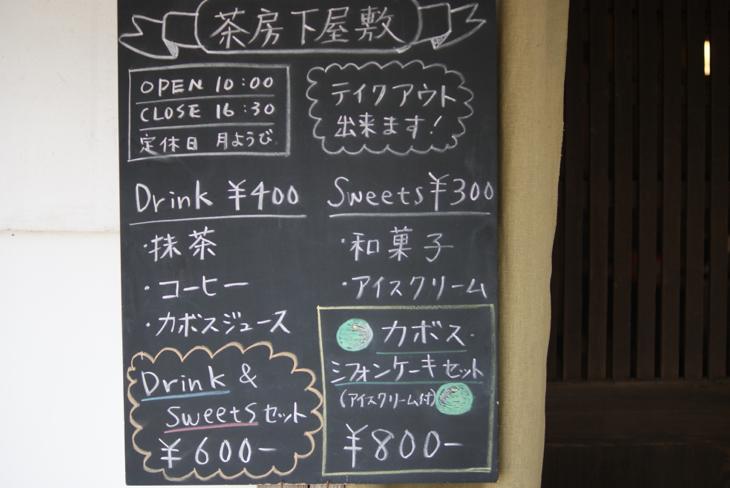 茶房下屋敷
OPEN 10:00
CLOSE 16:30
定休日 月ようび
テイクアウト
出来ます!
Drink ¥400
・抹茶
・コーヒー
・カボスジュース
Sweets ¥300
・和菓子
・アイスクリーム
Drink &
Sweets セット
¥600-
カボス
シフォンケーキセット
(アイスクリーム付)
¥800-